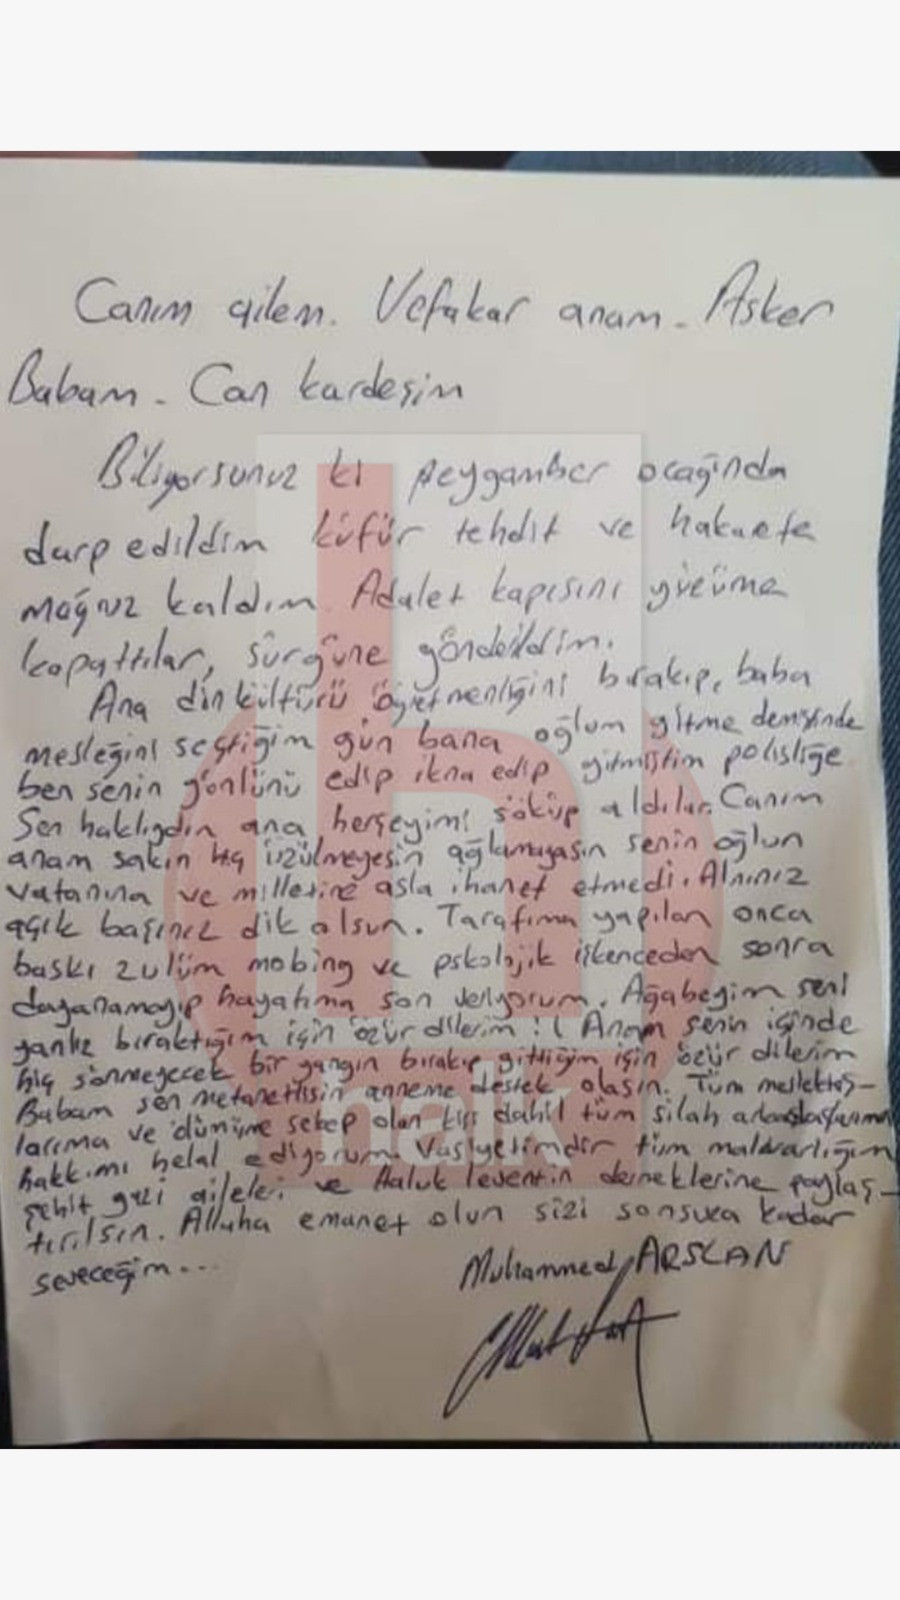 Canım ailem. Vefakar anam. Asker
Babam. Can kardeşim
Biliyorsunuz ki peygamber ocağında
darp edildim küfür tehdit ve hakarete
mağruz kaldım. Adalet kapısını yüzüme
kapattılar, sürgüne gönderildim.
Ana din kültürü öğretmenliğini bırakıp, baba
mesleğini seçtiğim gün bana oğlum gitme demişsinde
ben senin gönlünü edip ikna edip gitmiştim polisliğe
Sen haklıydın ana herşeyimi söküp aldılar. Canım
anam sakın hiç üzülmeyesin ağlamayasın senin oğlun
vatanına ve milletine asla ihanet etmedi. Alnınız
açık başınız dik olsun. Tarafıma yapılan onca
baskı zulüm mobing ve pskolojik işkenceden sonra
dayanamayıp hayatıma son veriyorum. Ağabeyim seni
yanlız bıraktığım için özür dilerim!! Anam senin içinde
hiç sönmeyecek bir yangın bırakıp gittiğim için özür dilerim
Babam sen metanetlisin anneme destek olasın. Tüm meslektaş-
larıma ve ölümüme sebep olan kişi dahil tüm silah arkadaşlarıma
hakkımı helal ediyorum. Vasiyetimdir tüm malvarlığım
şehit gazi aileleri ve Haluk leventin derneklerine paylaş-
tırılsın. Allaha emanet olun sizi sonsuza kadar
seveceğim...
Muhammed ARSLAN
h
halk